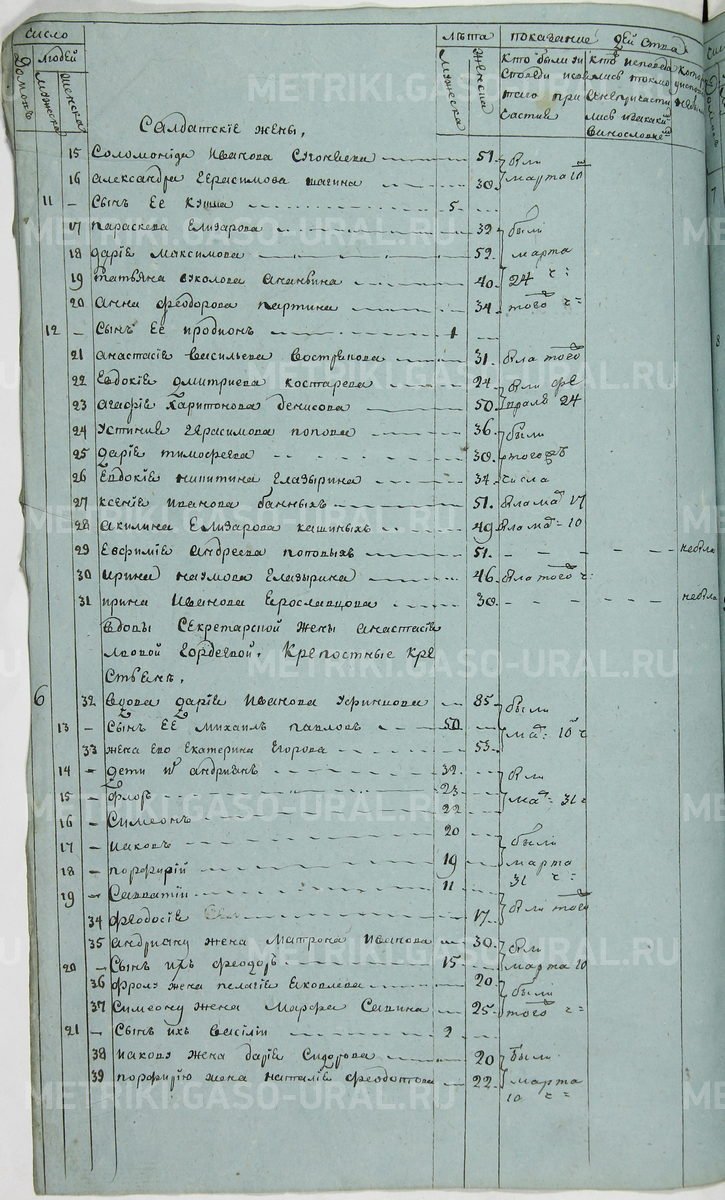 число
лѣта
показание
людей
домовъ
мужеска
женска
мужеска
женска
кто были
кто исповеда
лись токмо
Салдатскіе жены,
15 Соломонида Иванова 51 были
16 александра Герасимова шагина 30 марта 10
11 – Сынъ Ее 5
17 параскева Елизарова 39 были
18 дарiе максимова 52 марта
19 татьяна ананьина 40 24 ч:
20 анна феодорова партина 34 того ч:
12 – Сынъ Ее иродионъ 1
21 анастасiе васильева вострикова 31 была того
22 Евдокiе дмитриева костарева 24 были фе
23 агафiе Харитонова денисова 50 враля 24
24 устинiе Герасимова попова 36 были
25 дарiе тимофеева 30 того
26 Евдокiе никитина Глазырина 34 числа
27 ксенiе иванова банныхъ 51 была ма 17
28 акилина Елизарова кашиныхъ 49 была ма 10
29 Евфимiе андреева поповыхъ 51 небыла
30 ирина наумова Глазырина 46 была того ч:
31 ирина Иванова Ерославцова 30 небыла
вдовы Секретарской жены анастасiи
львовой Гордеевой. Крепостные кре
стьяне.
6 32 вдова дарiе Иванова 85 были
13 – Сынъ ЕЕ михаилъ павловъ 50 ма: 10 ч
33 жена ево Екатерина Егорова 53
14 – дети ихъ андриянъ 32 были
15 – флоръ 23 ма: 31 ч
16 – Симеонъ 22
17 – иаковъ 20 были
18 – порфирiй 19 марта
19 – Савватiи 11 31 ч:
34 феодосiе 17 были того
35 андриану жена матрона Иванова 30 были
20 – Сынъ ихъ феодоръ 15 марта 10
36 фролу жена пелагiе Яковлева 20 были
37 Симеону жена марфа Савина 25 того ч:
21 – Сынъ ихъ василiи 2
38 иакову жена дарiе Сидорова 20 были
39 порфирiю жена наталiе феодотова 22 марта
10 ч:
METRIKI.GASO-URAL.RU